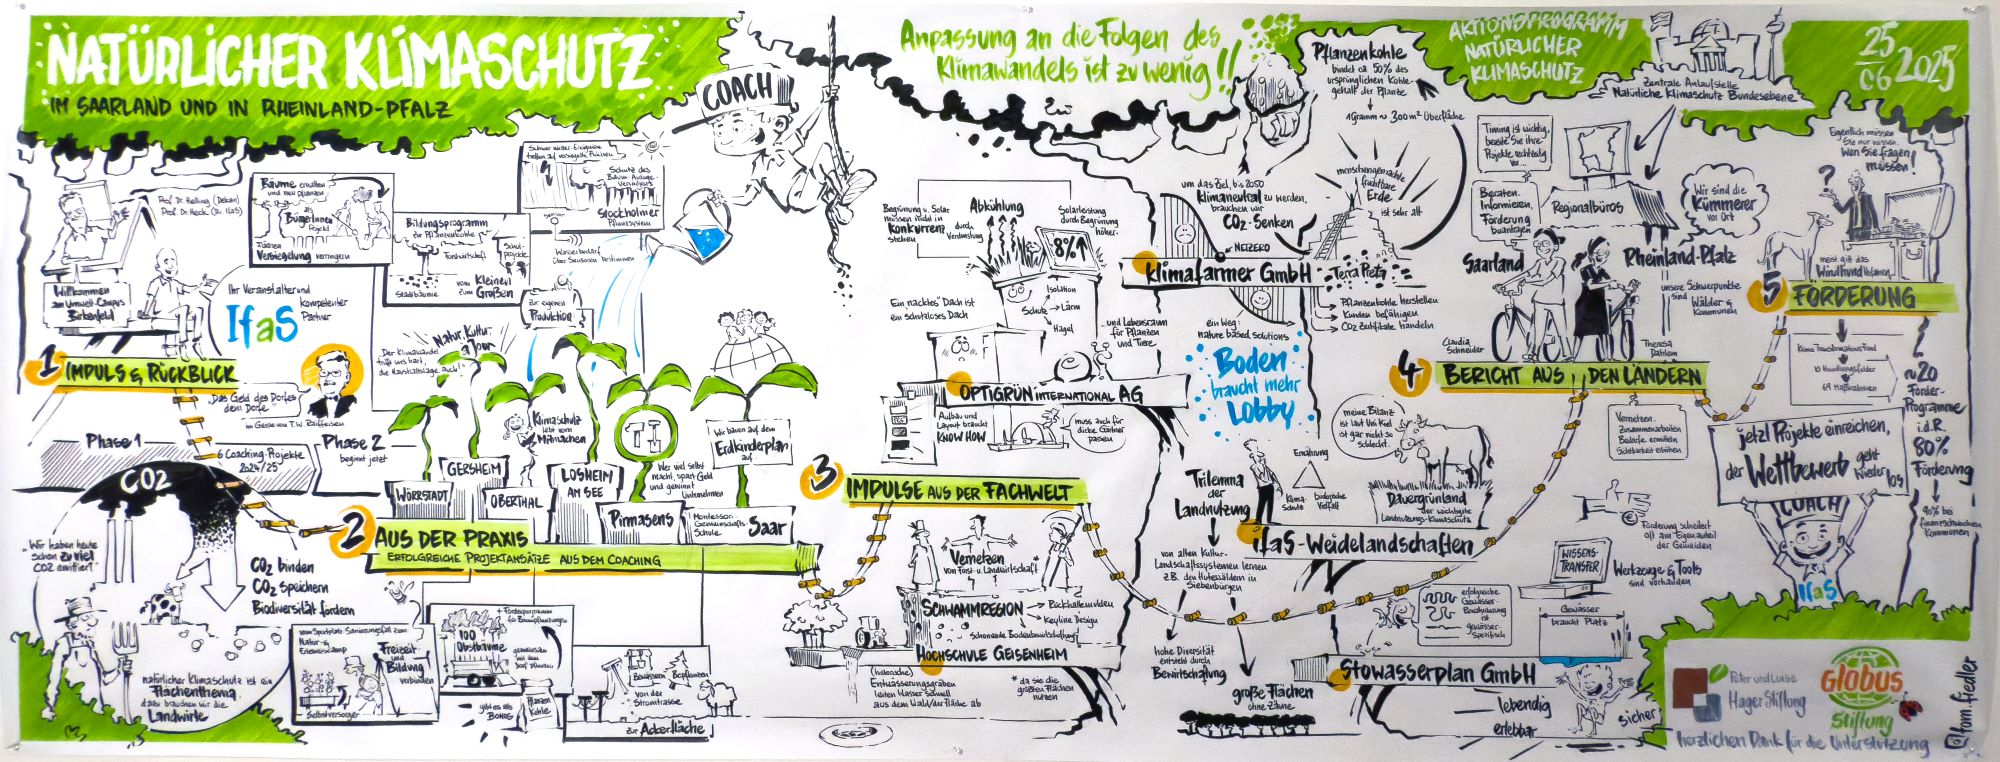 NATÜRLICHER KLIMASCHUTZ
IM SAARLAND UND IN RHEINLAND-PFALZ
COACH
Anpassung an die Folgen des
Klimawandels ist zu wenig!!
Pflanzenkohle
bindet ca 50% des
ursprünglichen Kohle-
gehalt der Pflanze
1 Gramm ~ 300 m² Oberfläche
AKTIONSPROGRAMM
NATÜRLICHER
KLIMASCHUTZ
Zentrale Anlaufstelle
Natürliche Klimaschutz Bundesebene
25
06 2025
Prof Dr. Helling (Dekan)
Prof. Dr. Heck (Dir. IfaS)
Willkommen
am Umwelt-Campus
Birkenfeld
Ihr Veranstalter und
kompetenter
Partner
IfaS
1 IMPULS & RÜCKBLICK
"Das Geld des Dorfes
dem Dorfe"
im Geiste von F.W. Raiffeisen
Phase 1
6 Coaching-Projekte
2024/25
Phase 2
beginnt jetzt
CO2
"Wir haben heute
schon zu viel
CO2 emittiert"
CO2 binden
CO2 Speichern
Biodiversität fördern
natürlicher Klimaschutz ist ein
Flächenthema
dazu brauchen wir die
Landwirte
Bäume erhalten
und neu pflanzen
als
BürgerInnen
Projekt
Versiegelung verringern
Bildungsprogramm
zur Pflanzenkohle
Forstwirtschaft
Schul-
projekte
Stadtbäume
vom Kleinen
zum Großen
zur eigenen
Produktion
Schutz des
Stockholmer
Pflanzsystem
Wasserbedarf
über Sensoren bestimmen
Der Klimawandel
trifft uns hart,
die Haushaltslage auch!
Natur Kultur
Klimaschutz
lebt vom
Mitmachen
WÖRRSTADT
GERSHEIM
OBERTHAL
LOSHEIM
AM SEE
Pirmasens
Montessori
Gemeinschafts
Schule
Saar
Wer viel selbst
macht, spart Geld
und gewinnt
Unternehmen
Wir bauen auf dem
Erdkinderplan
auf
2 AUS DER PRAXIS
ERFOLGREICHE PROJEKTANSÄTZE AUS DEM COACHING
vom Sportplatz-Sanierungsfall zum
Natur- &
Erlebniscamp
Freizeit
und
Bildung
verbinden
Selbstversorger
+ Förderprogramm
für Baumpflanzungen
100
Obstbäume
gemeinsam
mit dem
Dorf pflanzen
gibt es als
BONUS
Pflanzen
Kohle
Bewässern
Bepflanzen
von der
Stromtrasse
zur Ackerfläche
3 IMPULSE AUS DER FACHWELT
Begrünung u. Solar
müssen nicht in
Konkurrenz
stehen
Abkühlung
durch
Verdunstung
Solarleistung
durch Begrünung
höher
8%↑
Ein nacktes Dach ist
ein schutzloses Dach
Isolation
Schutz → Lärm
Hagel
und Lebensraum
für Pflanzen
und Tiere
OPTIGRÜN INTERNATIONAL AG
Aufbau und
Layout braucht
KNOW HOW
muss auch für
dicke Gärtner
passen
Vernetzen
von Forst- u. Landwirtschaft*
SCHWAMMREGION
→ Rückhaltemulden
→ Keyline Design
schonende Bodenbewirtschaftung
HOCHSCHULE GEISENHEIM
(historische)
Entwässerungsgräben
leiten Wasser schnell
aus dem Wald/der Fläche ab
* da sie die
größten Flächen
nutzen
um das Ziel, bis 2050
klimaneutral zu werden,
brauchen wir
CO2-Senken
NETZERO
Klimafarmer GmbH
menschengemachte
fruchtbare
Erde
ist sehr alt
Terra Preta
Pflanzenkohle herstellen
Kunden befähigen
CO2 Zertifikate handeln
ein Weg:
nature based solutions
Boden
braucht mehr
Lobby
Trilemma
der
Landnutzung
Ernährung
Klima-
Schutz
biologische
Vielfalt
meine Bilanz
ist laut Uni Kiel
ist gar nicht so
schlecht.
Dauergrünland
der wichtigste
Landnutzungs-Klimaschutz
ifaS-Weidelandschaften
von alten Kultur-
Landschaftssystemen lernen
z.B. den Hutewäldern in
Siebenbürgen
hohe Diversität
entsteht durch
Bewirtschaftung
große Flächen
ohne Zäune
erfolgreiche
Gewässer-
Renaturierung
ist
gewässer-
Spezifisch
WISSENS-
TRANSFER
Gewässer
braucht Platz
Stowasserplan GmbH
lebendig
erlebbar
sicher
Timing ist wichtig,
bereite Sie ihre
Projekte rechtzeitig
vor...
Beraten,
Informieren,
Förderung
beantragen
Regionalbüros
Wir sind die
Kümmerer
vor Ort
Saarland
Rheinland-Pfalz
unsere Schwerpunkte
sind
Wälder &
Kommunen
Claudia
Schneider
Theresa
Dahlem
4 BERICHT AUS DEN LÄNDERN
Vernetzen
Zusammenarbeiten
Bedarfe ermitteln
Sichtbarkeit erhöhen
Förderung scheitert
oft am Eigenanteil
der Gemeinden
Werkzeuge & Tools
sind vorhanden
Eigentlich müssen
Sie nur wissen,
wen Sie fragen
müssen!
meist gilt das
Windhundverfahren
5 FÖRDERUNG
Klima Transformations Fond
10 Handlungsfelder
69 Maßnahmen
~20
Förder-
Programme
i.d.R.
80%
Förderung
90% bei
finanzschwachen
Kommunen
jetzt Projekte einreichen,
der Wettbewerb geht
wieder los
COACH
IfaS
Peter und Luise
Hager Stiftung
Globus
Stiftung
herzlichen Dank für die Unterstützung
@tom.fiedler